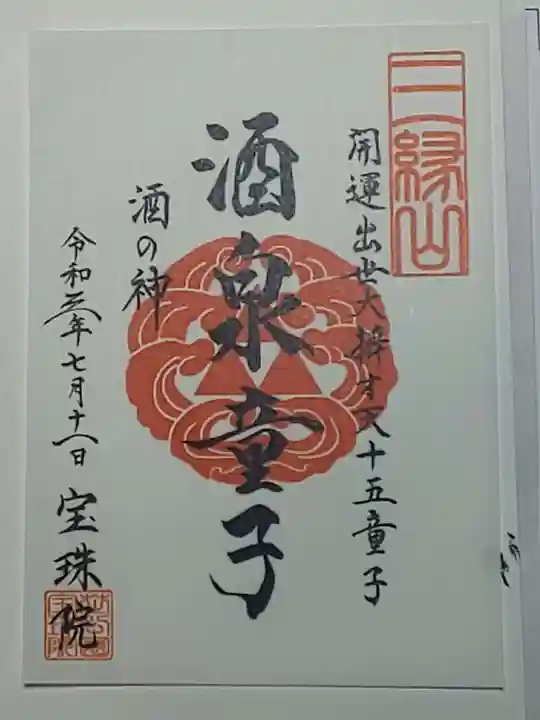 三縁山
開運出世大辨才天十五童子
酒泉童子
酒の神
令和三年七月十一日
宝珠院